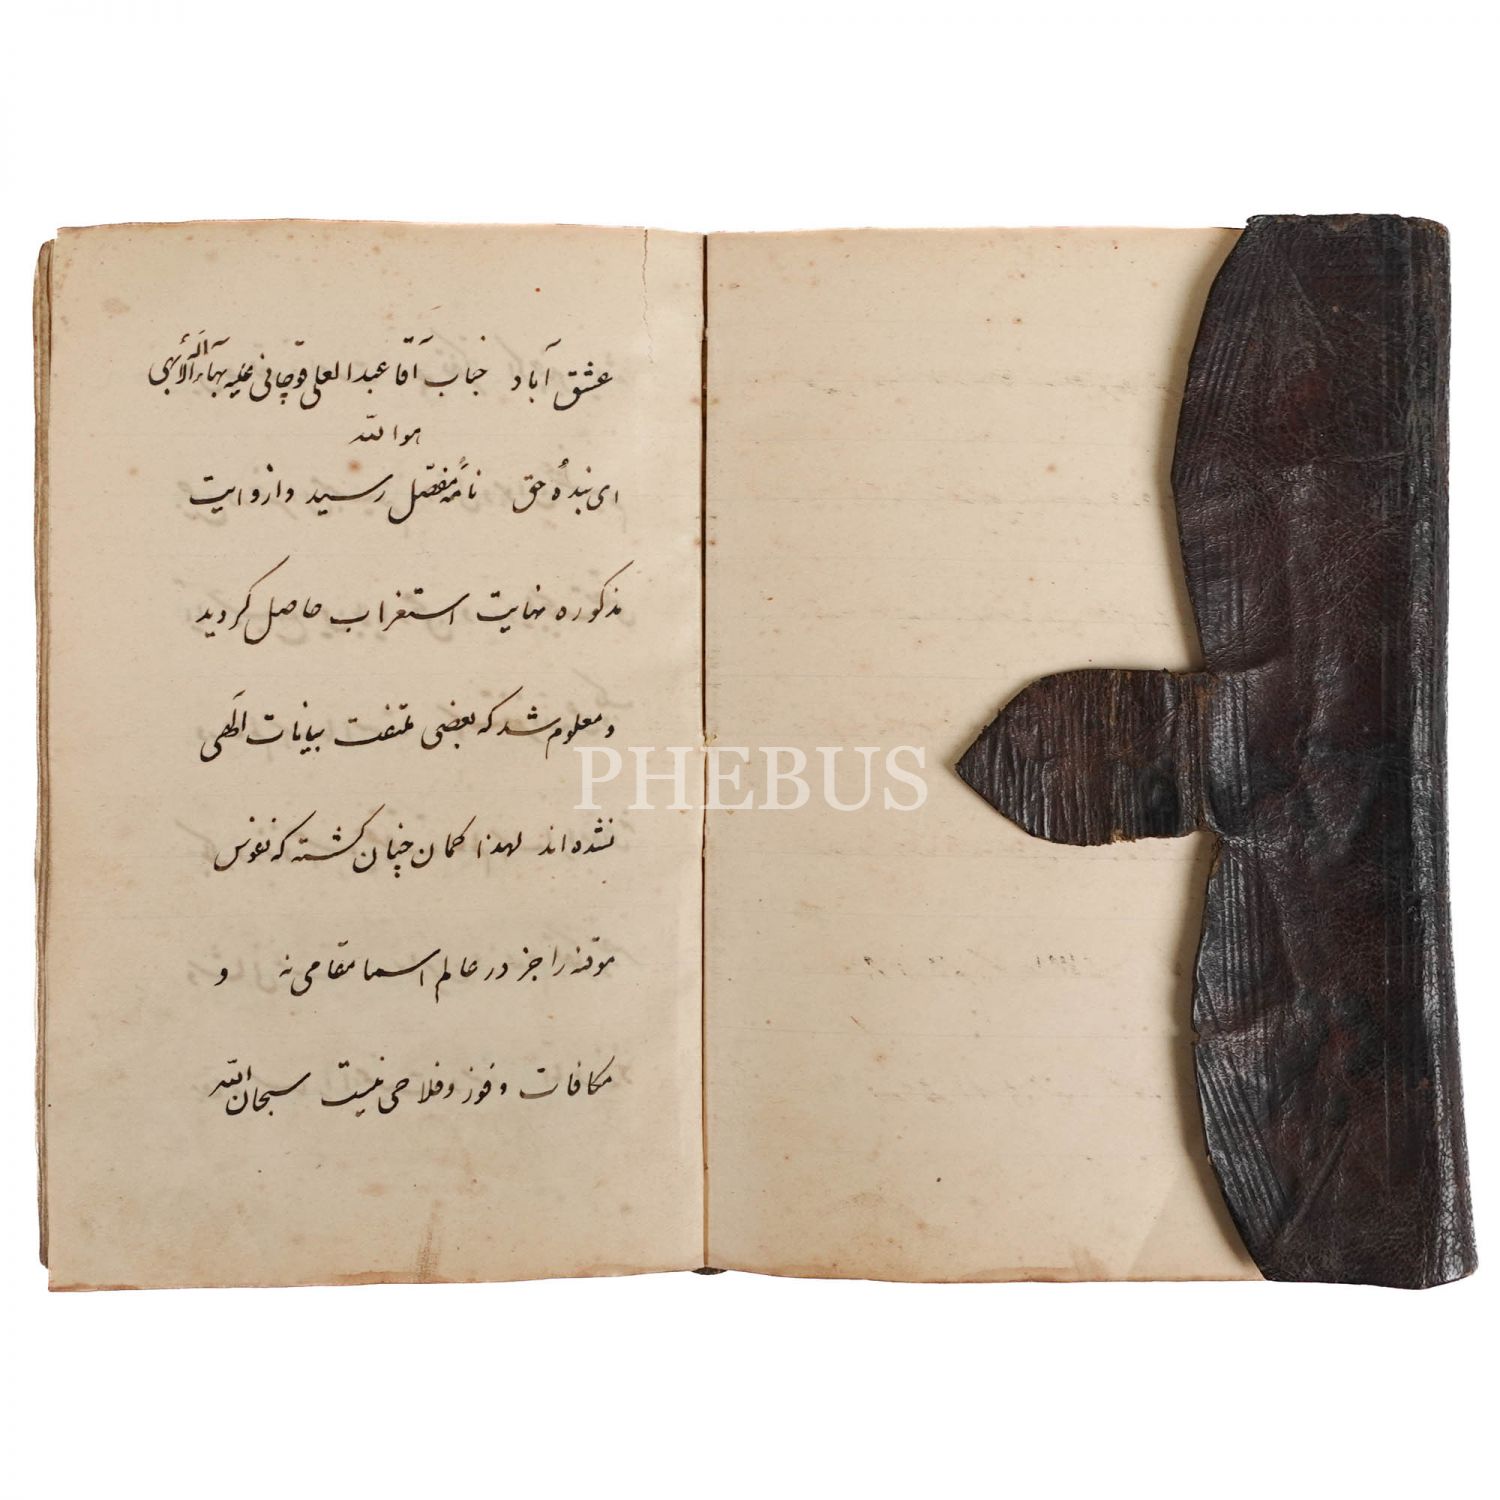 عشق آباد جناب آقا عبدالعلی قوچانی علیه بهآءالله الأبهی
هوالله
ای بندهٔ حق نامهٔ مفصّل رسید و از روایت
مذکوره نهایت استغراب حاصل گردید
و معلوم شد که بعضی ملتفت بیانات الهی
نشده‌اند لهذا گمان چنان گشته که نفوس
موقنه را جز در عالم اسما مقامی نه و
مکافات و فوز و فلاحی نیست سبحان‌الله
PHEBUS